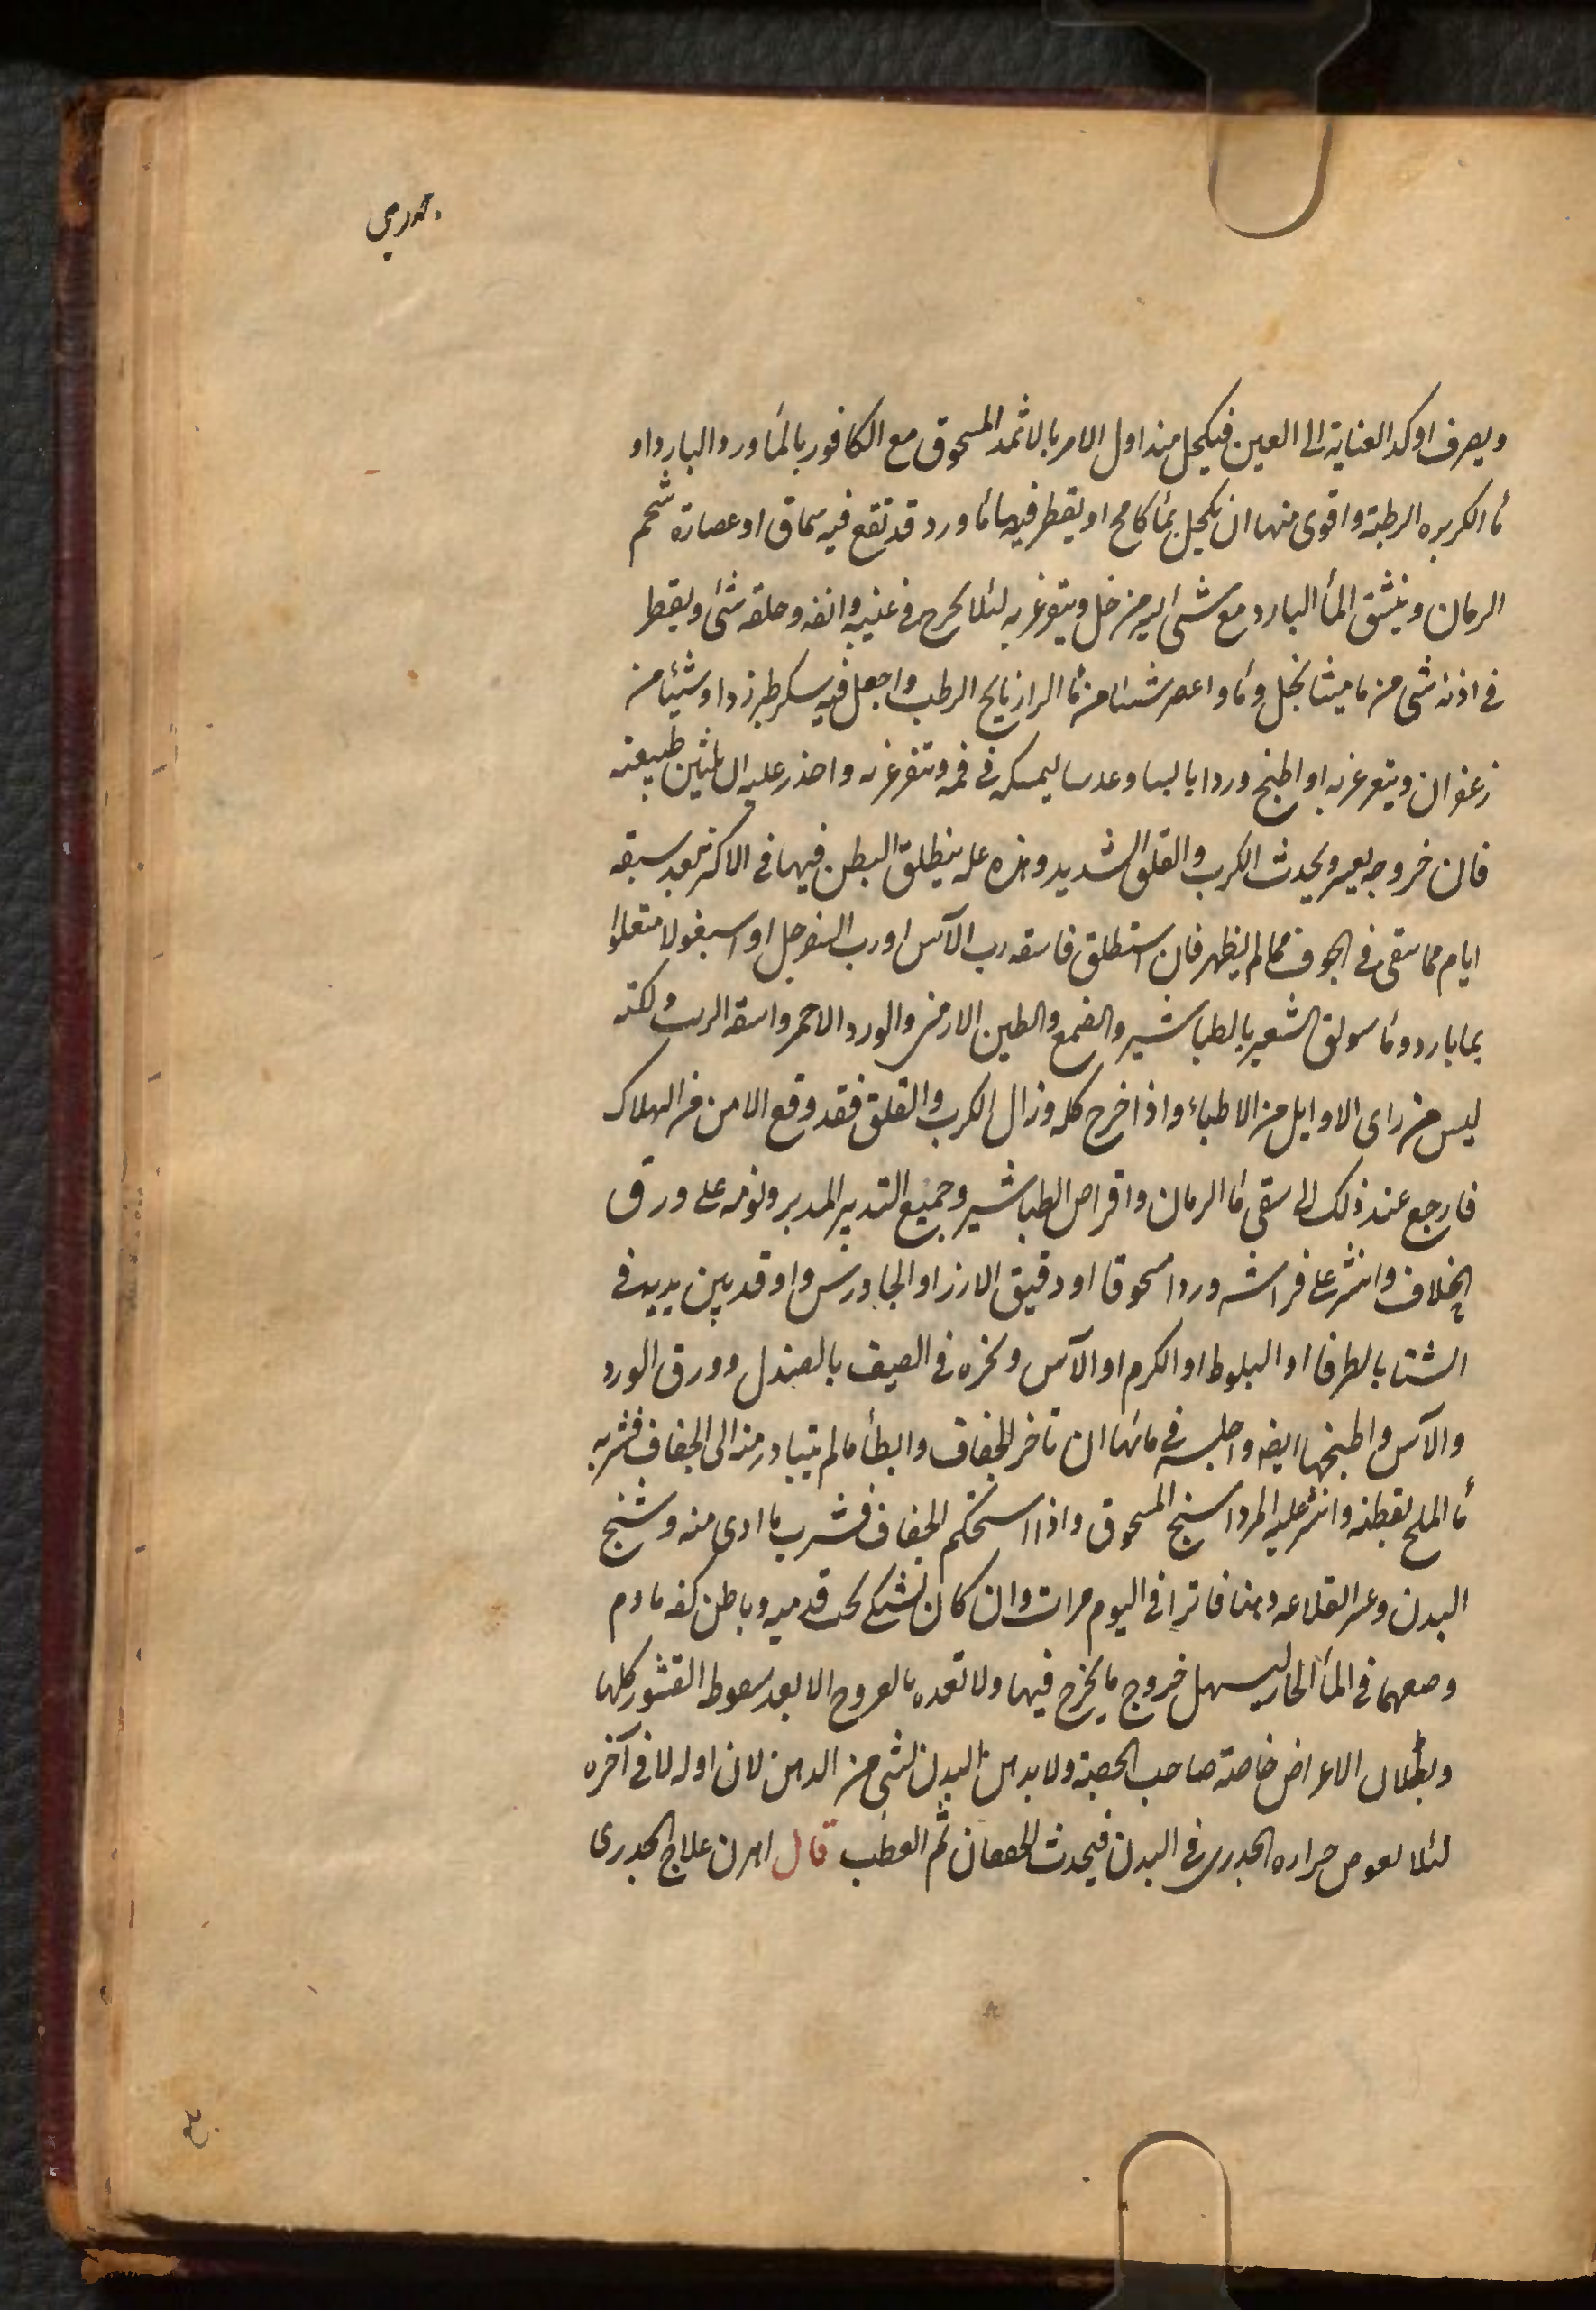 ويصرف اوكد العناية الى العين فيكحل منذ اول الامر بالاثمد المسحوق مع الكافور بالماورد البارد او
ماء الكزبره الرطبة واقوى منها ان يكحل بماء كامخ او يقطر فيها ماء ورد قد نقع فيه سماق او عصارة شحم
الرمان وينشق الماء البارد مع شى يسير من خل ويتغرغر به لئلا يخرج فى عينيه وانفه وحلقه شئ ويقطر
فى اذنه شى من ماميثا بخل وماء واعصر شيئا من ماء الرازيانج الرطب واجعل فيه سكر طبرزد او شيئا من
زعفران ويتغرغر به او اطبخ وردا يابسا وعدسا ليمسكه فى فمه ويتغرغر به واحذر عليه ان تلين طبيعته
فان خروجه يعسر ويحدث الكرب والقلق الشديد وهذه علة ينطلق البطن فيها فى الاكثر بعد سبعة
ايام مما بقى فى الجوف مما لم يظهر فان استطلق فاسقه رب الآس او رب السفرجل او اسبغولا مقلوا
بما بارد وماء سويق الشعير بالطباشير والصمغ والطين الارمنى والورد الاحمر واسقه الرب ولكنه
ليس من راى الاوايل من الاطباء واذا خرج كله وزال الكرب والقلق فقد وقع الامن من الهلاك
فارجع عند ذلك الى سقى ماء الرمان واقراص الطباشير وجميع التدبير المدبر ونومه على ورق
الخلاف وانثر على فراشه وردا مسحوقا او دقيق الارز او الجاورس واوقد بين يديه فى
الشتا بالطرفا او البلوط او الكرم او الآس وبخره فى الصيف بالصندل وورق الورد
والآس واطبخها ايضا واجلسه فى مائها ان تاخر الجفاف وابطأ ما لم يتبادر منه الى الجفاف فشربه
ماء الملح بقطنة وانثر عليه المرداسنج المسحوق واذا استحكم الجفاف فشرب ما اذى منه وشنج
البدن وعسر القلاعه دهنا فاترا فى اليوم مرات وان كان يشتكى تحت قدميه وباطن كفه فادم
وضعهما فى الماء الحار ليسهل خروج ما يخرج فيها ولا تغذه بالفروج الا بعد سقوط القشور كلها
وبطلان الاعراض خاصة صاحب الحصبة ولا يدهن البدن بشى من الدهن لا فى اوله لا فى آخره
لئلا يغوص حراره الجدرى فى البدن فيحدث الخفقان ثم العطب قال اهرن علاج الجدرى